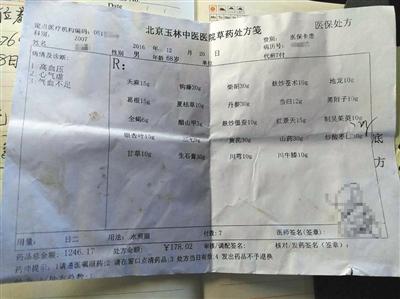 北京玉林中医医院草药处方笺
医保处方
定点医疗机构编码:051
2016 年 12 月 20 日
费别: 医保卡患
科别: 2007
性别 男 年龄68岁
病历号:
姓名
代煎7付
病情及诊断:
R:
1 高血压
2 心气虚
3 气血不足
天麻15g 钩藤30g 柴胡30g 麸炒苍术15g 地龙10g
葛根15g 夏枯草10g 丹参30g 当归12g
全蝎6g 醋山甲 麸炒僵蚕10g 红景天15g 制吴茱萸10g
银杏叶10g 黄芪30g 山药30g 炒酸枣仁30g
甘草10g 生石膏30g 川芎10g 川牛膝10g
底方
用量: 日二 用法: 水煎服 付数:7 医师签名(签章):
药品总金额: 1246.17 处方金额: ¥178.02 审核/调配签名: 核对/发药签名(签章):
药师提示:1请遵医嘱服药;2请在窗口点清药品;3处方当日有效;4发出药品不予退换